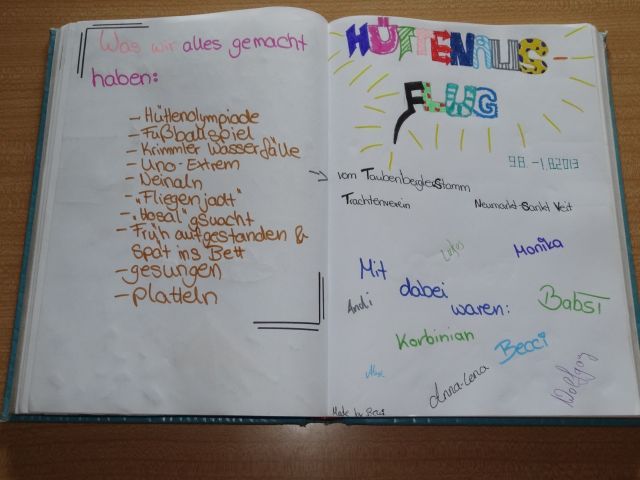 Was wir alles gemacht
haben:
- Hüttenolympiade
- Fußballspiel
- Krimmler Wasserfälle
- Uno-Extrem
- Neinaln
- "Fliegenjadt"
- "Hosal" gsuacht
- Früh aufgestanden &
spät ins Bett
- gesungen
- platteln
HÜTTENAUS-
FLUG
9.8. - 1.8.2013
vom Taubenbergler Stamm
Trachtenverein Neumarkt-Sankt Veit
Monika
Mit
dabei
waren:
Andi
Babsi
Korbinian
Becci
Alex
Anna-Lena
Wolfgang
Made by Becci